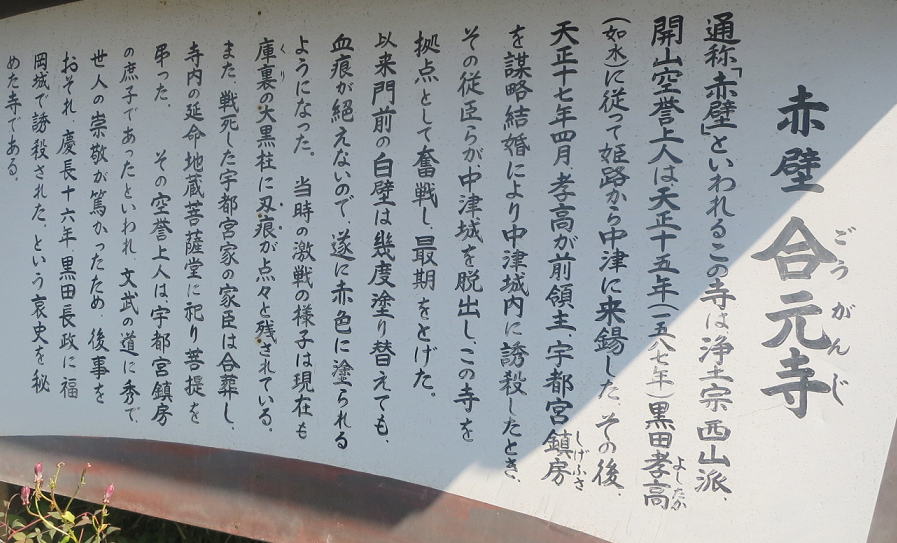 赤壁 合元寺
ごうがんじ
通称「赤壁」といわれるこの寺は浄土宗西山派、
開山空誉上人は天正十五年(一五八七年)黒田孝高
よしたか
(如水)に従って姫路から中津に来錫した。その後、
天正十七年四月孝高が前領主、宇都宮鎮房
しげふさ
を謀略結婚により中津城内に誘殺したとき、
その従臣らが中津城を脱出し、この寺を
拠点として奮戦し、最期をとげた。
以来門前の白壁は幾度塗り替えても、
血痕が絶えないので、遂に赤色に塗られる
ようになった。当時の激戦の様子は現在も
庫裏の大黒柱に刃痕が点々と残されている。
くり
また、戦死した宇都宮家の家臣は合葬し、
寺内の延命地蔵菩薩堂に祀り菩提を
弔った。 その空誉上人は、宇都宮鎮房
の庶子であったといわれ、文武の道に秀で、
世人の崇敬が篤かったため、後事を
おそれ、慶長十六年、黒田長政に福
岡城で誘殺された、という哀史を秘
めた寺である。